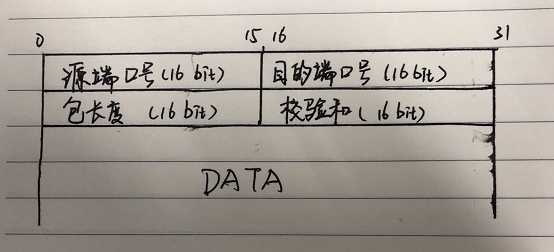 0 15 16 31
源端口号(16 bit) 目的端口号(16 bit)
包长度 (16 bit) 校验和(16 bit)
DATA